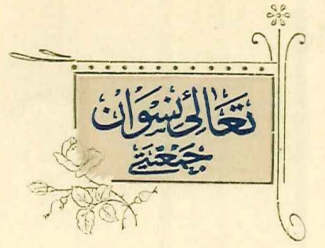 تَعَالِئ نِسْوَانْ
جَمْعِيَّتِي